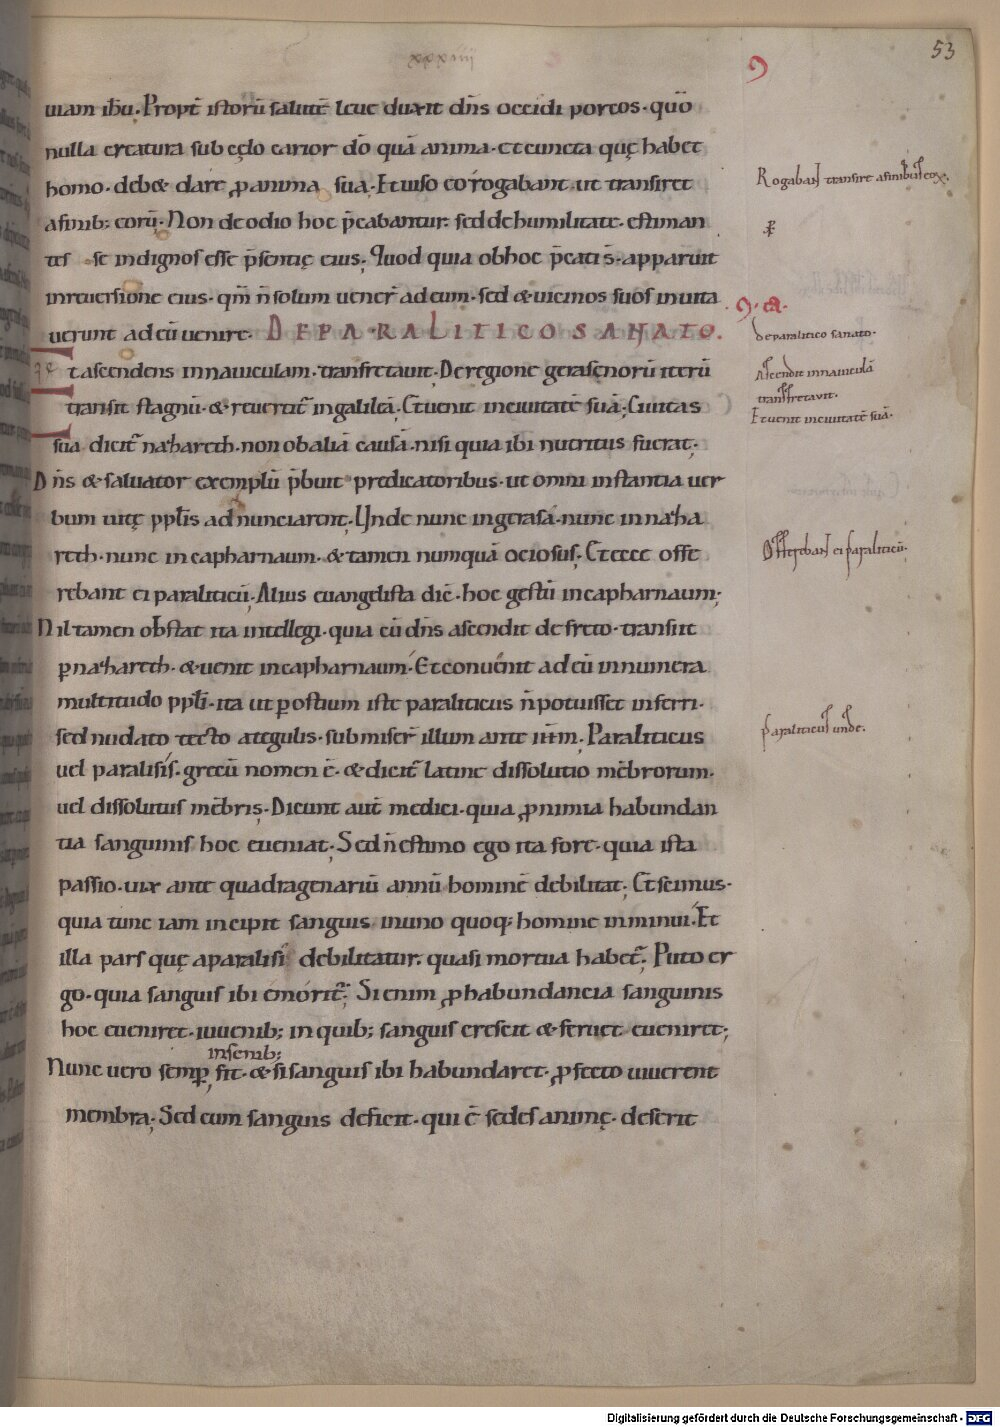 xxxiiij
53
uiam ihũ. Propt̃ istorũ salutẽ leue duxit dñs occidi porcos. quõ
nulla creatura sub cęlo carior dõ quã anima. et cuncta quę habet
homo. deb& dare ꝓ anima sua. Et uiso eo rogabant. ut transiret
a finib; eorũ. Non de odio hoc p̃cabantur. sed de humilitate. estiman
tes se indignos esse p̃sentię eius. Quod quia ob hoc p̃cati s̄. apparuit
in reuersione eius. qm̃ ñ solum uener̃ ad eum. sed & uicinos suos inuita
uerunt ad eũ uenire. DE PARALITICO SANATO.
Et ascendens in nauiculam. transfretauit. De regione gerasęnorũ iterũ
transit stagnũ. & reuertit̃ in galileã. Et uenit in ciuitatẽ suã; Ciuitas
sua dicit̃ nazhareth. non ob aliã causã. nisi quia ibi nutritus fuerat;
Dñs & saluator exemplũ p̃buit predicatoribus. ut omni instantia uer
bum uitę pp̃lis adnunciarent; Unde nunc in gerasa. nunc in nazha
reth. nunc in capharnaum. & tamen numquã ociosus; Et ecce offe
rebant ei paraliticũ; Alius euangelista dic̃. hoc gestũ in capharnaum;
Nil tamen obstat ita intellegi. quia cũ dñs ascendit de freto. transiit
ꝑ nazhareth. & uenit in capharnaum. Et conuenit ad eũ innumera
multitudo pp̃li. ita ut ꝑ ostium iste paraliticus ñ potuisset inferri.
sed nudato tecto a tegulis. submiser̃ illum ante ihm̃. Paraliticus
uel paralisis. grecũ nomen ẽ. & dicit̃ latine dissolutio mẽbrorum.
uel dissolutus mẽbris; Dicunt aut̃ medici. quia ꝓ nimia habundan
tia sanguinis hoc eueniat; Sed ñ estimo ego ita fore. quia ista
passio. uix ante quadragenariũ annũ hominẽ debilitat; Et scimus.
quia tunc iam incipit sanguis in uno quoq; homine inminui. Et
illa pars quę a paralisi debilitatur. quasi mortua habet̃; Puto er
go. quia sanguis ibi emorit̃; Si enim ꝓ habundancia sanguinis
hoc eueniret. iuuenib; in quib; sanguis crescit & feruet eueniret;
in senib;
Nunc uero semꝑ, fit. & si sanguis ibi habundaret. ꝓfecto uiuerent
membra; Sed cum sanguis deficit. qui ẽ sedes animę. deserit
Rogabant transire a finibus eoꝝ.
de paralitico sanato.
Ascendit in nauiculã
transfretauit.
Et uenit in ciuitatẽ suã.
Offerebant ei paraliticũ.
paraliticus unde.
Digitalisierung gefördert durch die Deutsche Forschungsgemeinschaft - DFG